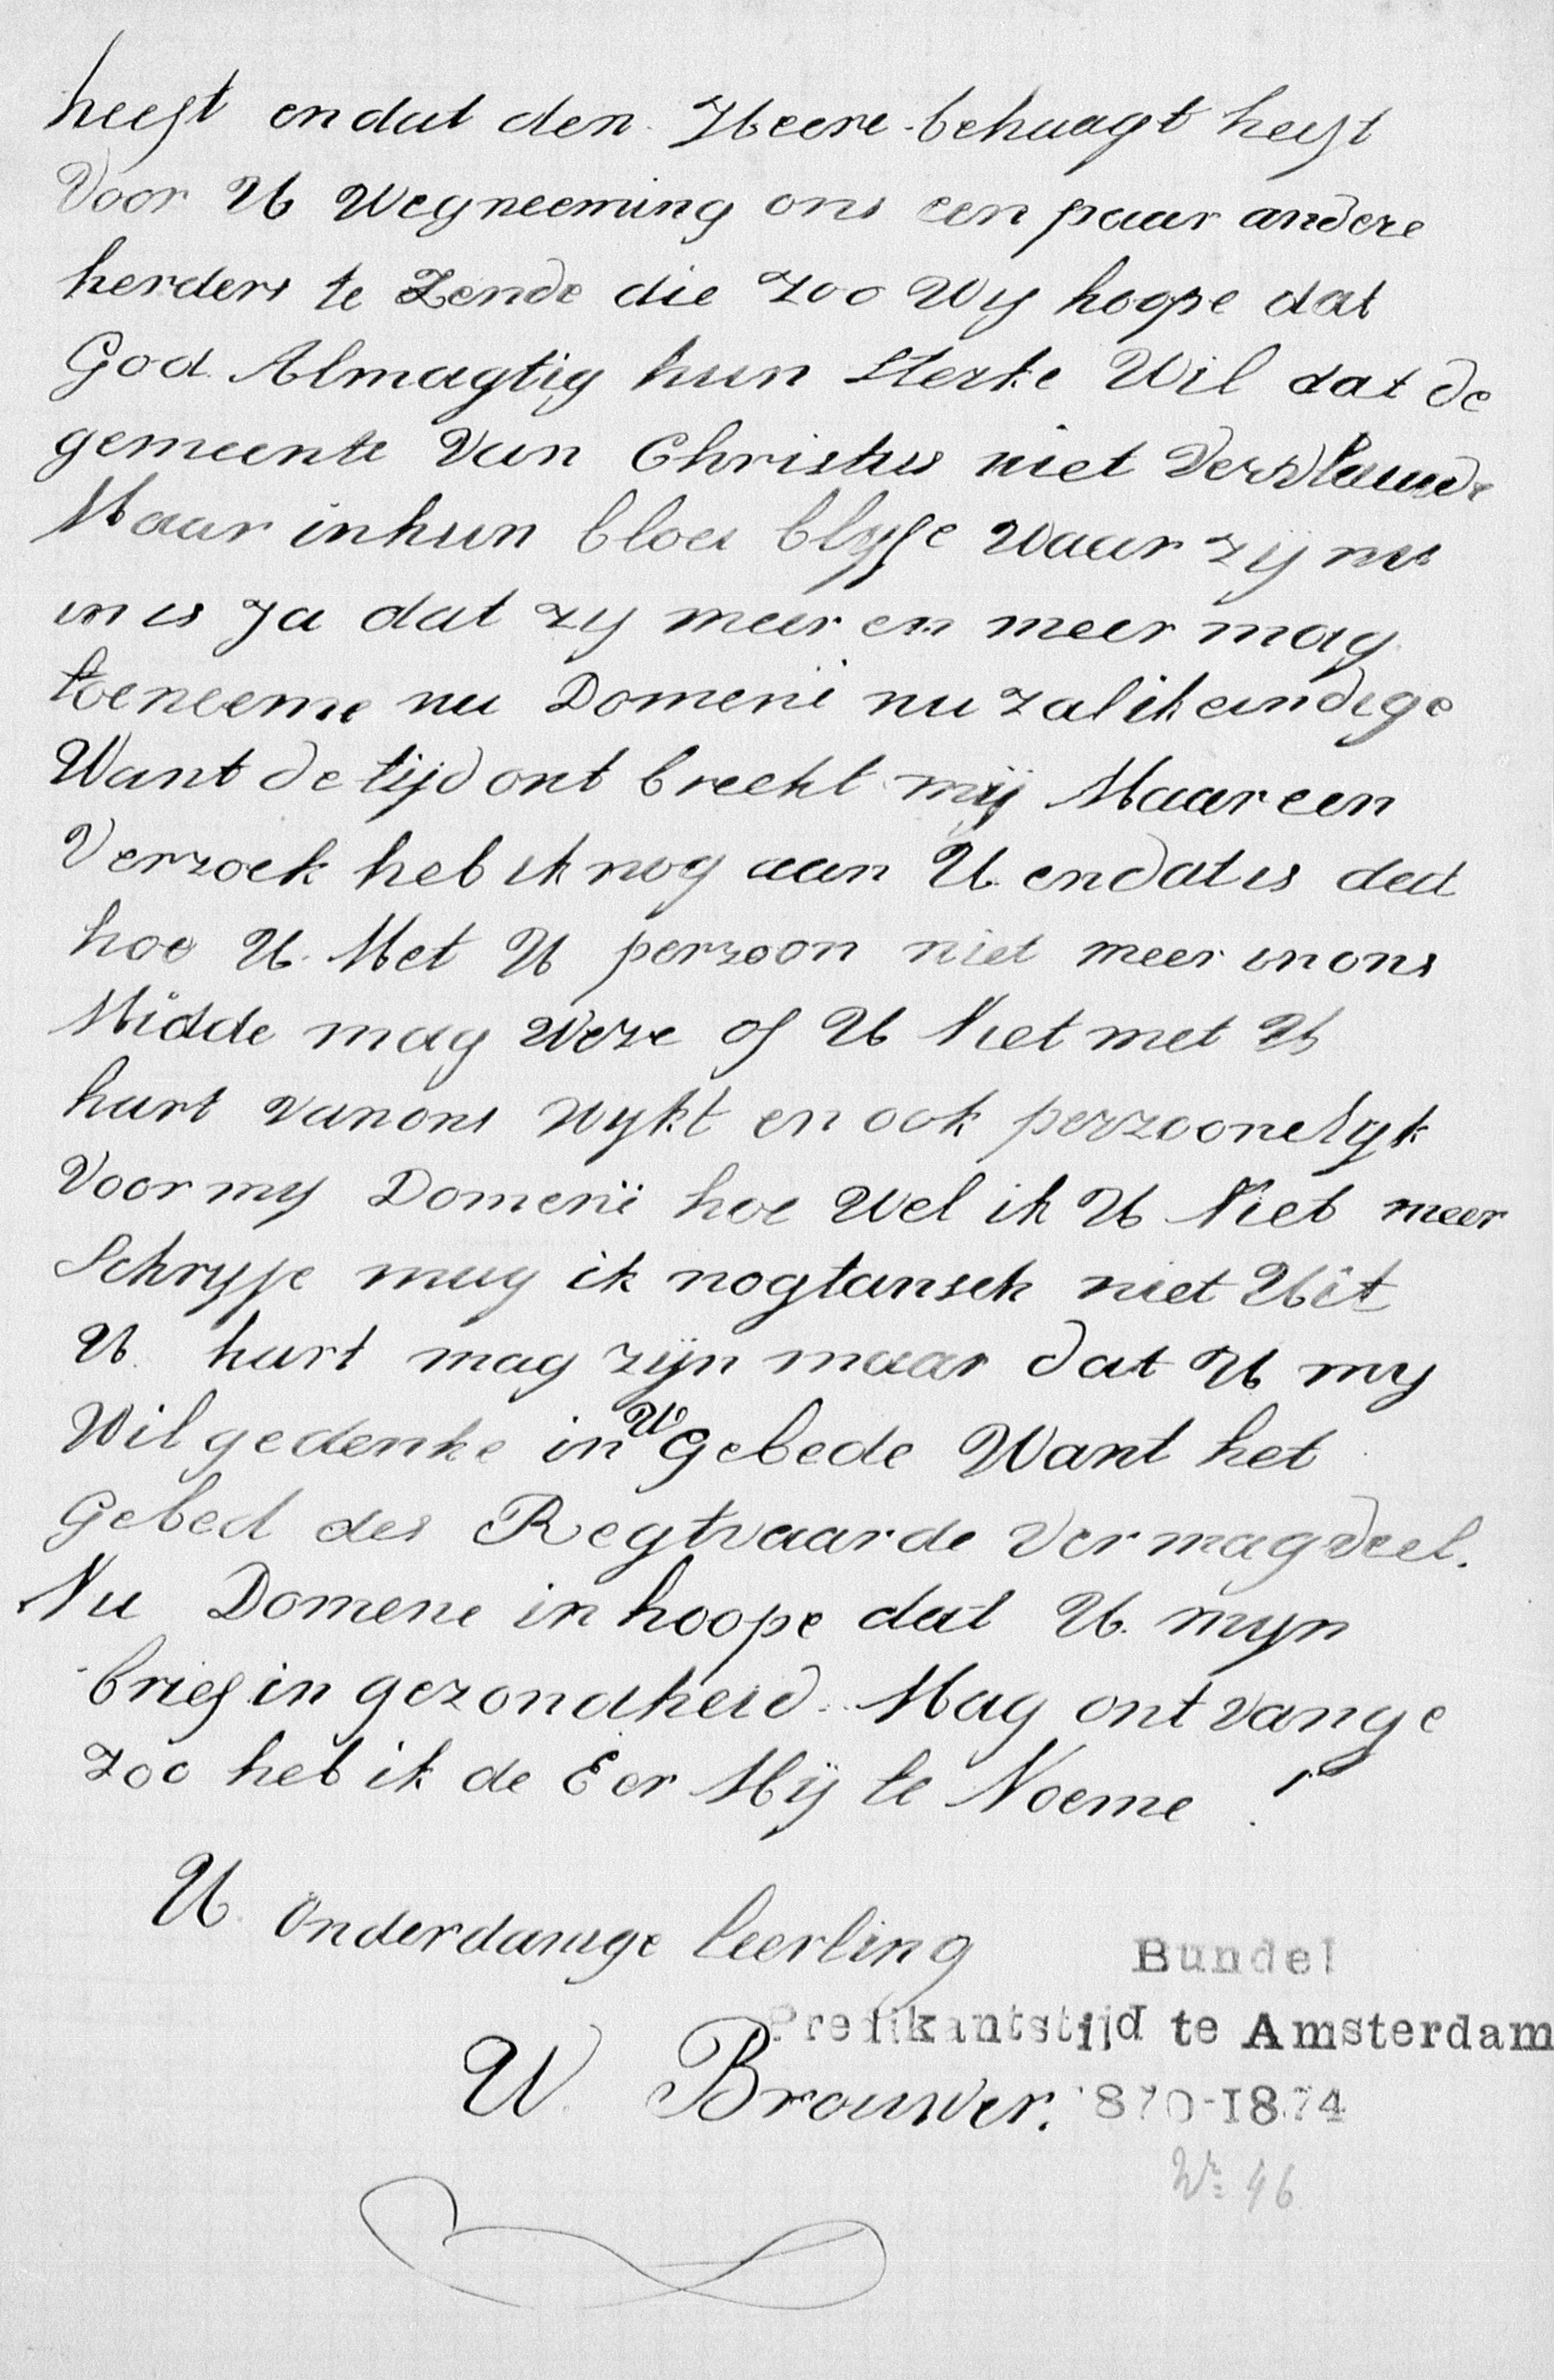 heeft en dat den Heere behaagt heeft
Voor U Wegneeming ons een paar andere
herders te Zende die Zoo Wy hoope dat
God Almagtig hun Sterke Wil dat de
gemeente Van Christus niet Verflauwde
Maar in hun bloei blyfe Waar zij nu
in is Ja dat zy meer en meer mag
toeneeme nu Domenï nu zal ik eindige
Want de tijd ont breekt mij Maar een
Verzoek heb ik nog aan U en dat is dat
hoe U Met U perzoon niet meer in ons
Midde mag Weze of U Niet met U
hart van ons Wykt en ook perzoonelyk
Voor my Domenï hoe Wel ik U Niet meer
Schryfe mag ik nogtansch niet Uit
U hart mag zijn maar dat U my
Wil gedenke in U Gebede Want het
Gebed des Regtvaarde Vermag veel.
Nu Domene in hoope dat U mijn
brief in gezondheid Mag ontvange
zoo heb ik de Eer Mij te Noeme !
U Onderdanige leerling
W. Brouwer.
Bundel
Predikantstijd te Amsterdam
1870-1874
Nr 46